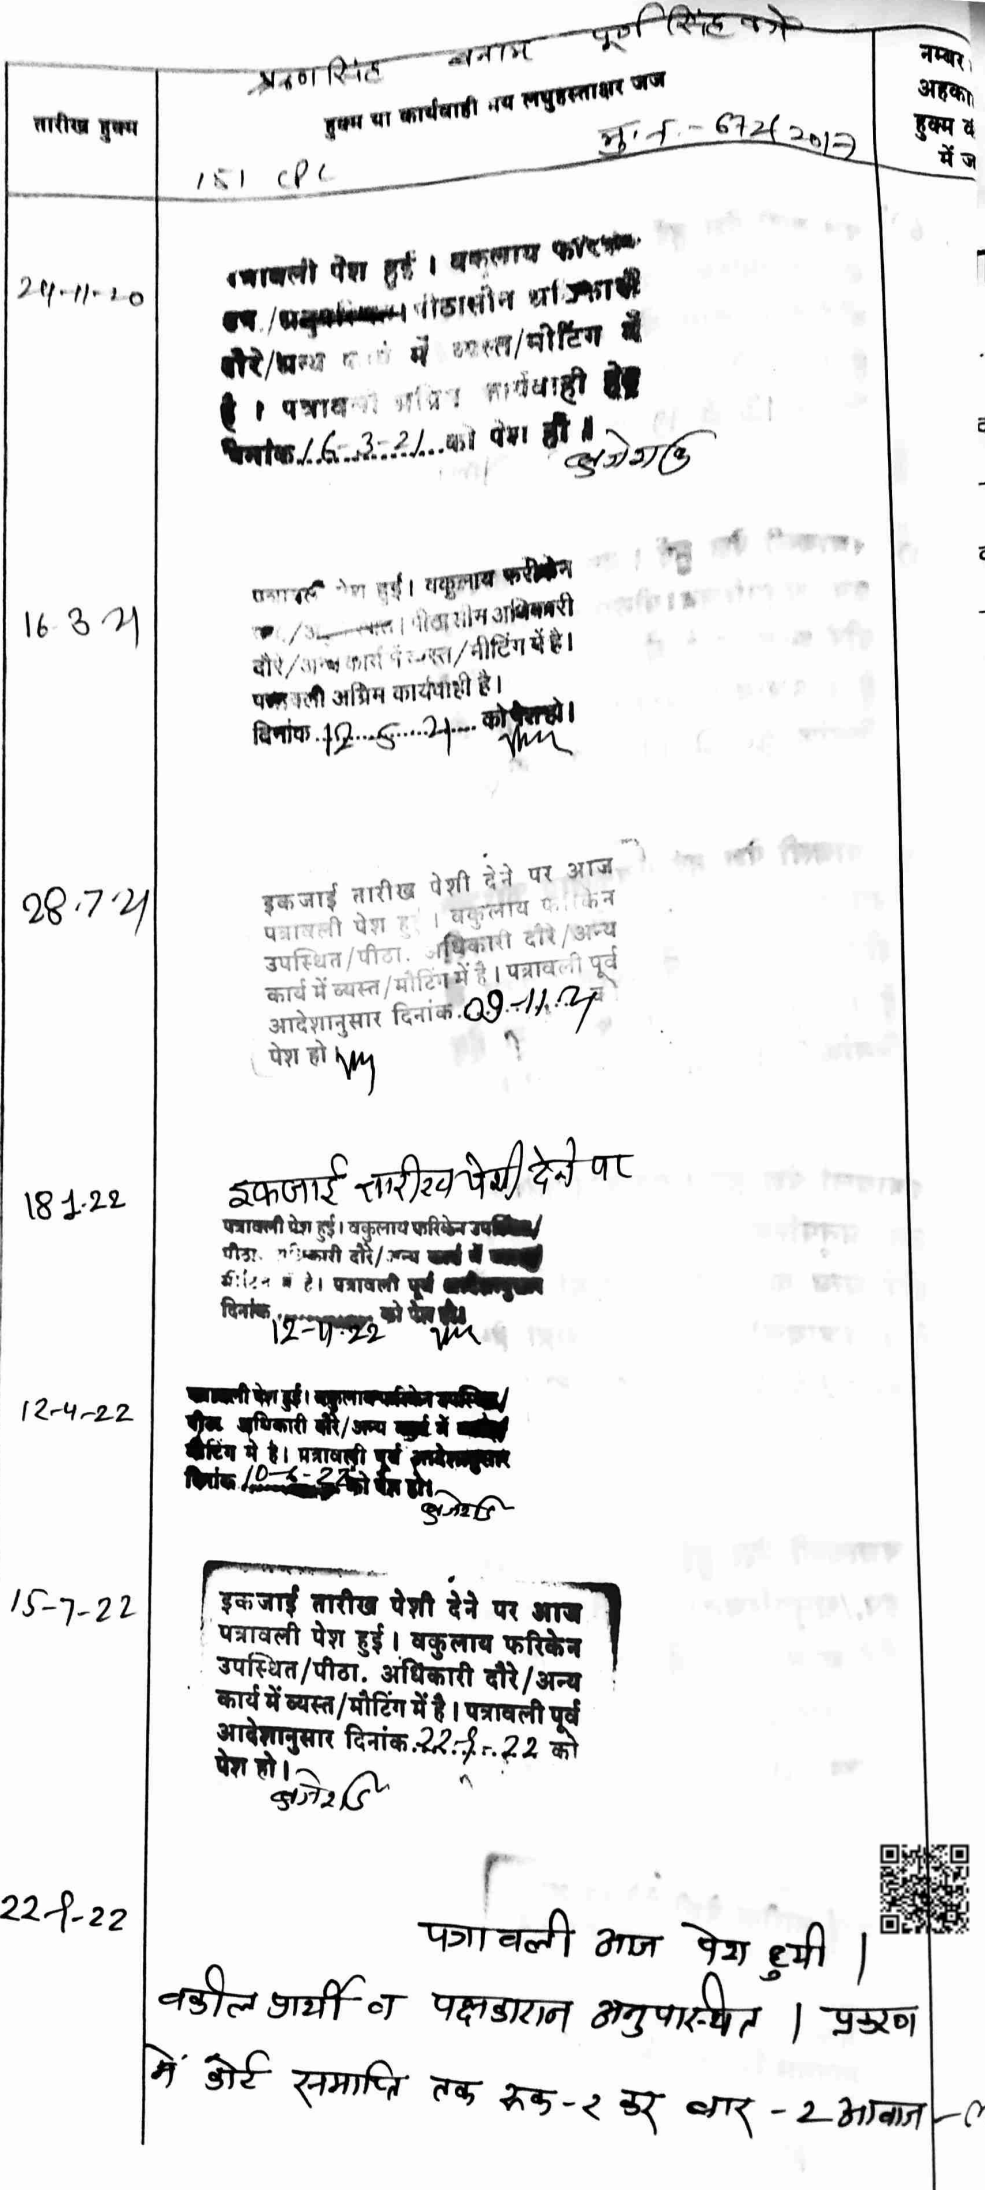 बनाम पूर्ण सिंह
तारीख हुक्म
हुक्म या कार्यवाही मय लघुहस्ताक्षर जज
नम्बर
अहका
हुक्म
में ज
मु.न.-672/2017
151 CPC
24-11-20
पत्रावली पेश हुई । वकुलाय
पीठासीन
दौरे/अन्य में व्यस्त/मीटिंग में
है ।
दिनांक 16-3-21 को पेश हो ।
16-3-21
पेश हुई। वकुलाय फरीकेन
पीठासीन अधिकारी
दौरे/अन्य कार्य में व्यस्त/मीटिंग में है।
पत्रावली अग्रिम कार्यवाही है।
दिनांक 12-5-21 को पेश हो।
28.7.21
इकजाई तारीख पेशी देने पर आज
पत्रावली पेश हुई । वकुलाय फरिकेन
उपस्थित/पीठा. अधिकारी दौरे/अन्य
कार्य में व्यस्त/मीटिंग में है। पत्रावली पूर्व
आदेशानुसार दिनांक 09-11-21
पेश हो।
18.1.22
इकजाई तारीख पेशी देने पर
पत्रावली पेश हुई। वकुलाय फरिकेन उपस्थित/
पीठा. अधिकारी दौरे/अन्य कार्य में
मीटिंग में है। पत्रावली पूर्व आदेशानुसार
दिनांक को पेश हो।
12-4-22
12-4-22
पत्रावली पेश हुई। वकुलाय फरिकेन उपस्थित/
पीठा. अधिकारी दौरे/अन्य कार्य में
मीटिंग में है। पत्रावली पूर्व आदेशानुसार
दिनांक को पेश हो।
15-7-22
इकजाई तारीख पेशी देने पर आज
पत्रावली पेश हुई। वकुलाय फरिकेन
उपस्थित/पीठा. अधिकारी दौरे/अन्य
कार्य में व्यस्त/मीटिंग में है। पत्रावली पूर्व
आदेशानुसार दिनांक 22-9-22 को
पेश हो।
22-9-22
पत्रावली आज पेश हुयी ।
वकील प्रार्थी व पक्षकारान अनुपस्थित । प्रकरण
में कोर्ट समाप्ति तक रूक-२ कर बार-2 आवाज